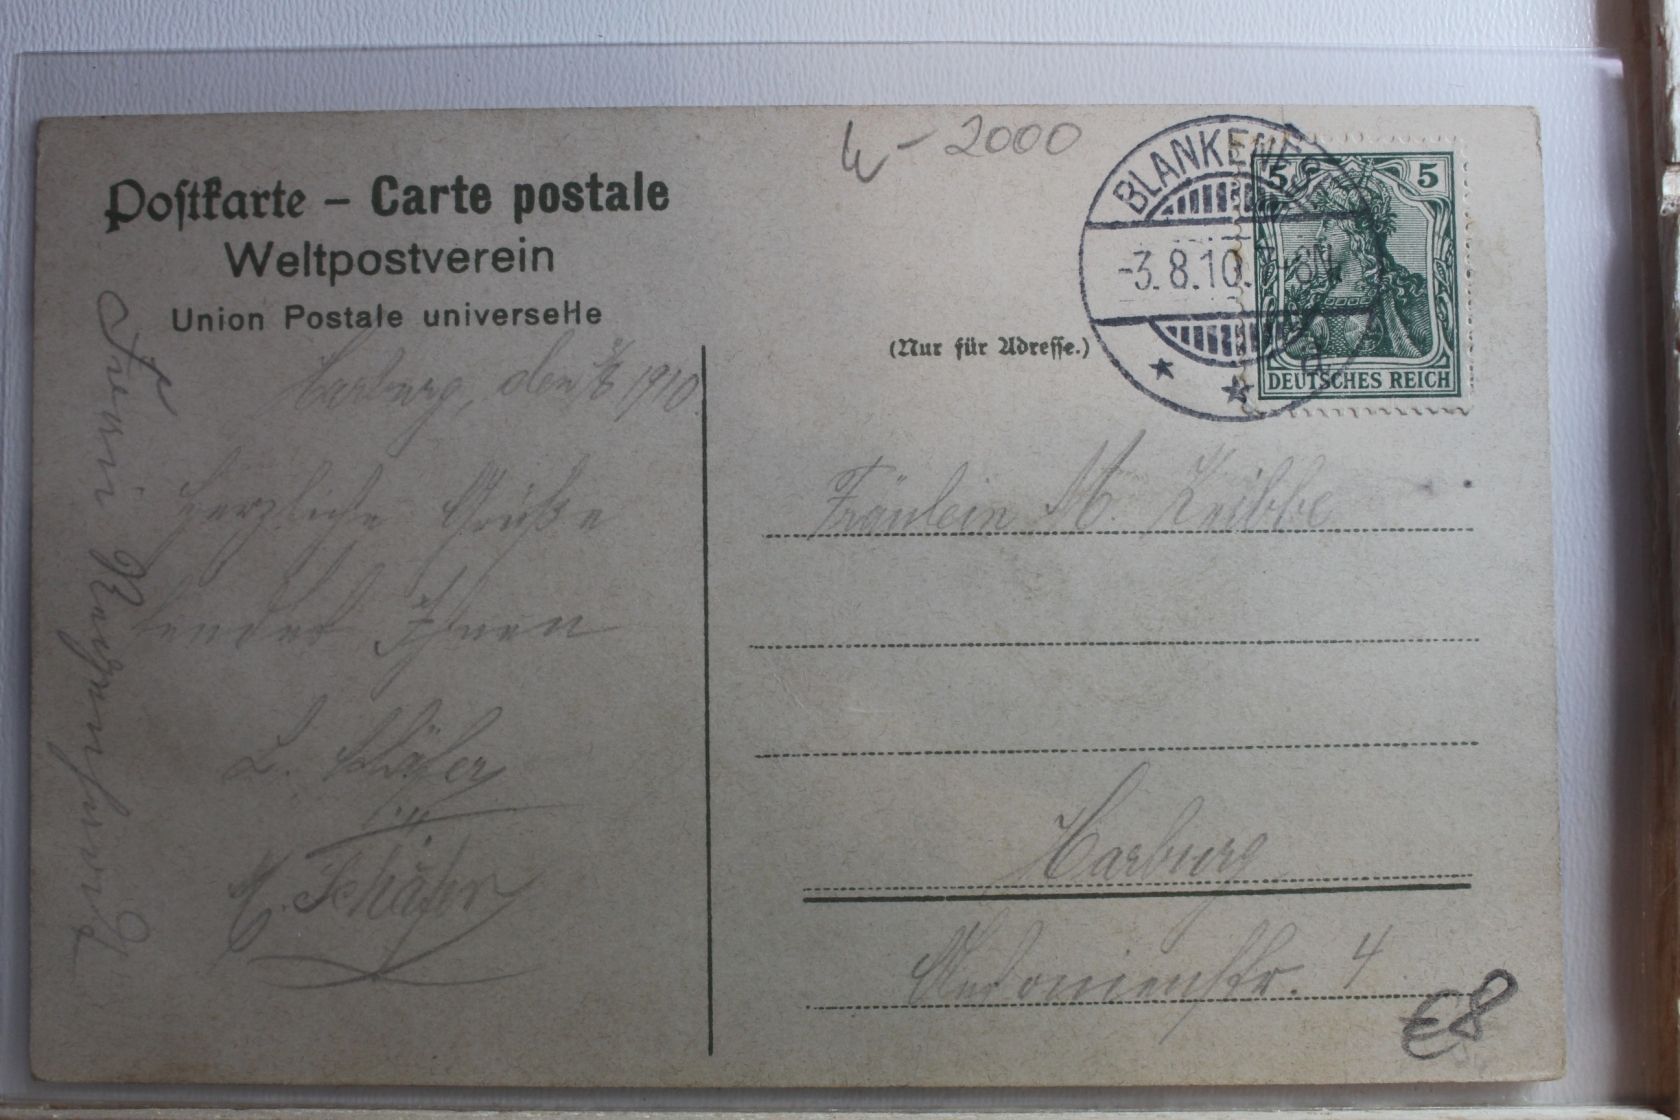 Postkarte – Carte postale
Weltpostverein
Union Postale universelle
- 2000
BLANKEN
-3.8.10. -8N
5 5
DEUTSCHES REICH
(Nur für Adresse.)
Harburg, den 3/8 1910.
Herzliche Grüße
sendet Ihnen
L. Schäfer
E. Schäfer
Fräulein M.
Harburg
str. 4
€8